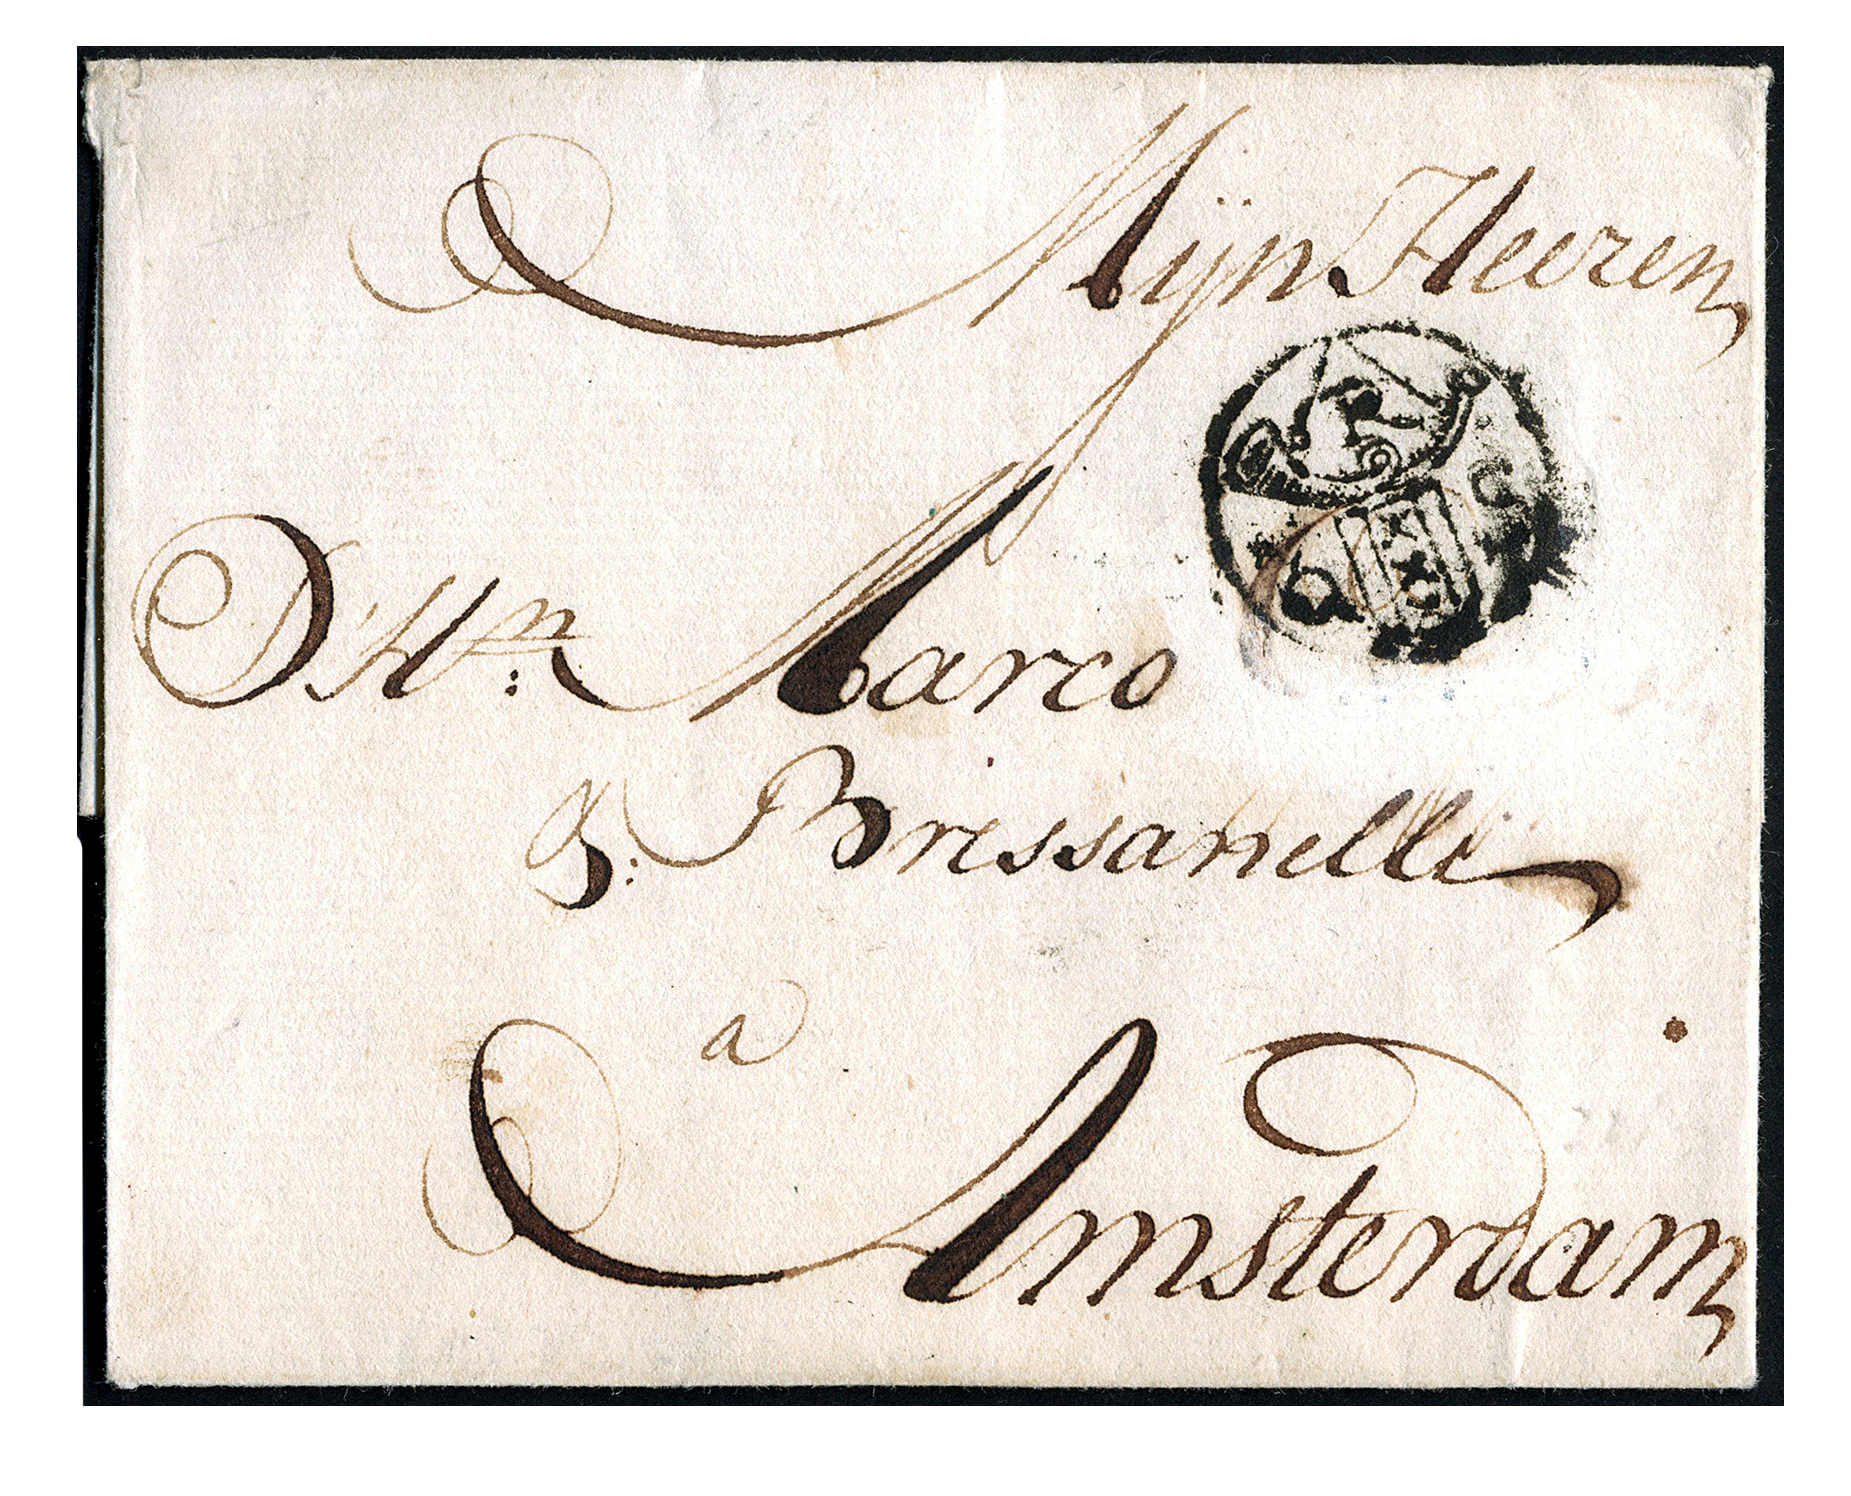 Mÿn Heeren
D'Hn: Marco
&: Bressanelli
a
Amsterdam